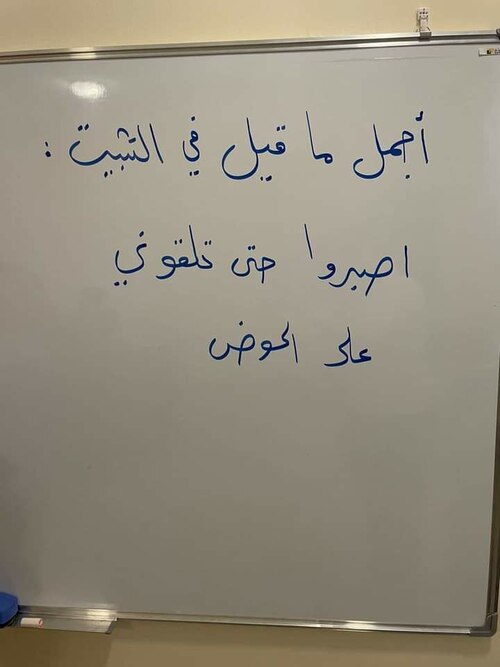 أجمل ما قيل في التثبيت :
اصبروا حتى تلقوني
على الحوض